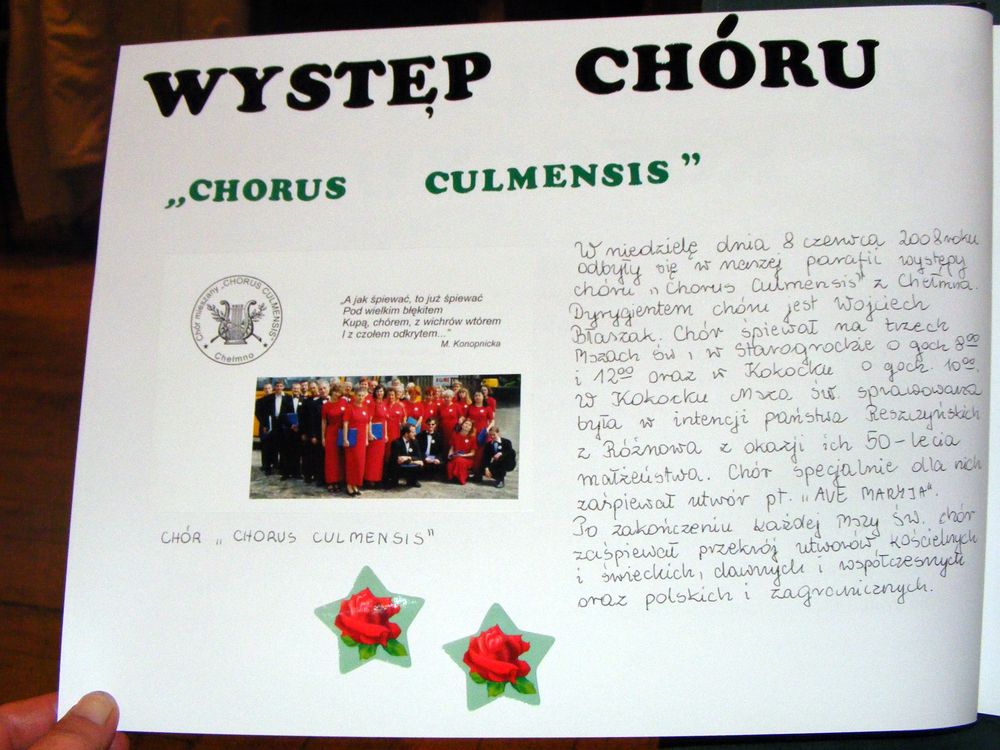 WYSTĘP CHÓRU
„CHORUS CULMENSIS”
Chór mieszany „CHORUS CULMENSIS”
Chełmno
„A jak śpiewać, to już śpiewać
Pod wielkim błękitem
Kupą, chórem, z wichrów wtórem
I z czołem odkrytem...”
M. Konopnicka
CHÓR „CHORUS CULMENSIS”
W niedzielę dnia 8 czerwca 2008 roku
odbyły się w naszej parafii występy
chóru „Chorus Culmensis” z Chełmna.
Dyrygientem chóru jest Wojciech
Błaszak. Chór śpiewał na trzech
Mszach Św., w Starogrodzie o godz. 8⁰⁰
i 12⁰⁰ oraz w Kokocku o godz. 10³⁰.
W Kokocku Msza Św. sprawowana
była w intencji państwa Reszczyńskich
z Różnowa z okazji ich 50-lecia
małżeństwa. Chór specjalnie dla nich
zaśpiewał utwór pt. „AVE MARYJA”.
Po zakończeniu każdej Mszy Św. chór
zaśpiewał przekrój utworów kościelnych
i świeckich, dawnych i współczesnych
oraz polskich i zagranicznych.